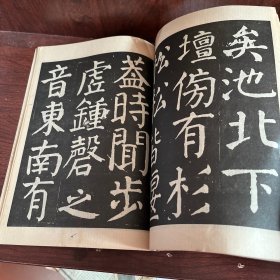 矣池北下
壇傍有杉
松松皆偃
蓋時聞步
虛鍾磬之
音東南有